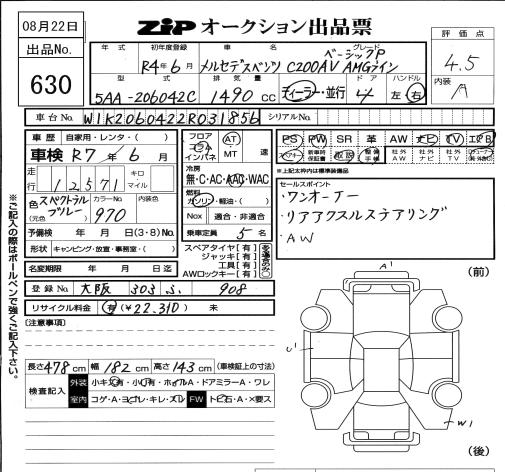 08月22日
ZiP オークション出品票
評価点
4.5
内装
A
出品No.
630
年式 初年度登録 車名 グレード
R4年6月 メルセデスベンツ C200AV ベーシックP AMGライン
型式 排気量 ドア ハンドル
5AA-206042C 1490 CC ディーラー・並行 4 左 右
車台No. W1K2060422R031856 シリアルNo.
車歴 自家用・レンタ・( )
車検 R7年/6月
走行 12,571 キロ マイル
色 スペクトラルブルー (元色) カラーNo. 970 内装色
予備検 年 月 日(3・8)No.
形状 キャンピング・放置・事務室・( )
名変期限 年 月 日迄
フロア コラム インパネ AT MT 速
冷房 無・C・AC・AAC・WAC
燃料 ガソリン・軽油・( )
Nox 適合・非適合
乗車定員 5 名
スペアタイヤ[有]
ジャッキ[有]
工具[有]
AWロックキー[有]
PS PW SR 革 AW ナビ TV エアB
スマートキー 新車時保証書 取説 整備手帳 社外AW 社外ナビ 社外TV
※上記太枠内は標準装備品
セールスポイント
・ワンオーナー
・リアアクスルステアリング
・AW
登録No. 大阪 303 ふ 908
リサイクル料金 有(¥22,310) 未
[注意事項]
長さ478cm 幅182cm 高さ143cm (車検証上の寸法)
検査記入 外装 小キズ有・小凹有・ホイルA・ドアミラーA・ワレ
室内 コゲ・A・ヨゴレ・キレ・スレ FW トビ石・A・×要ス
※ご記入の際はボールペンで強くご記入下さい。
(前)
A1
U1
W1
(後)